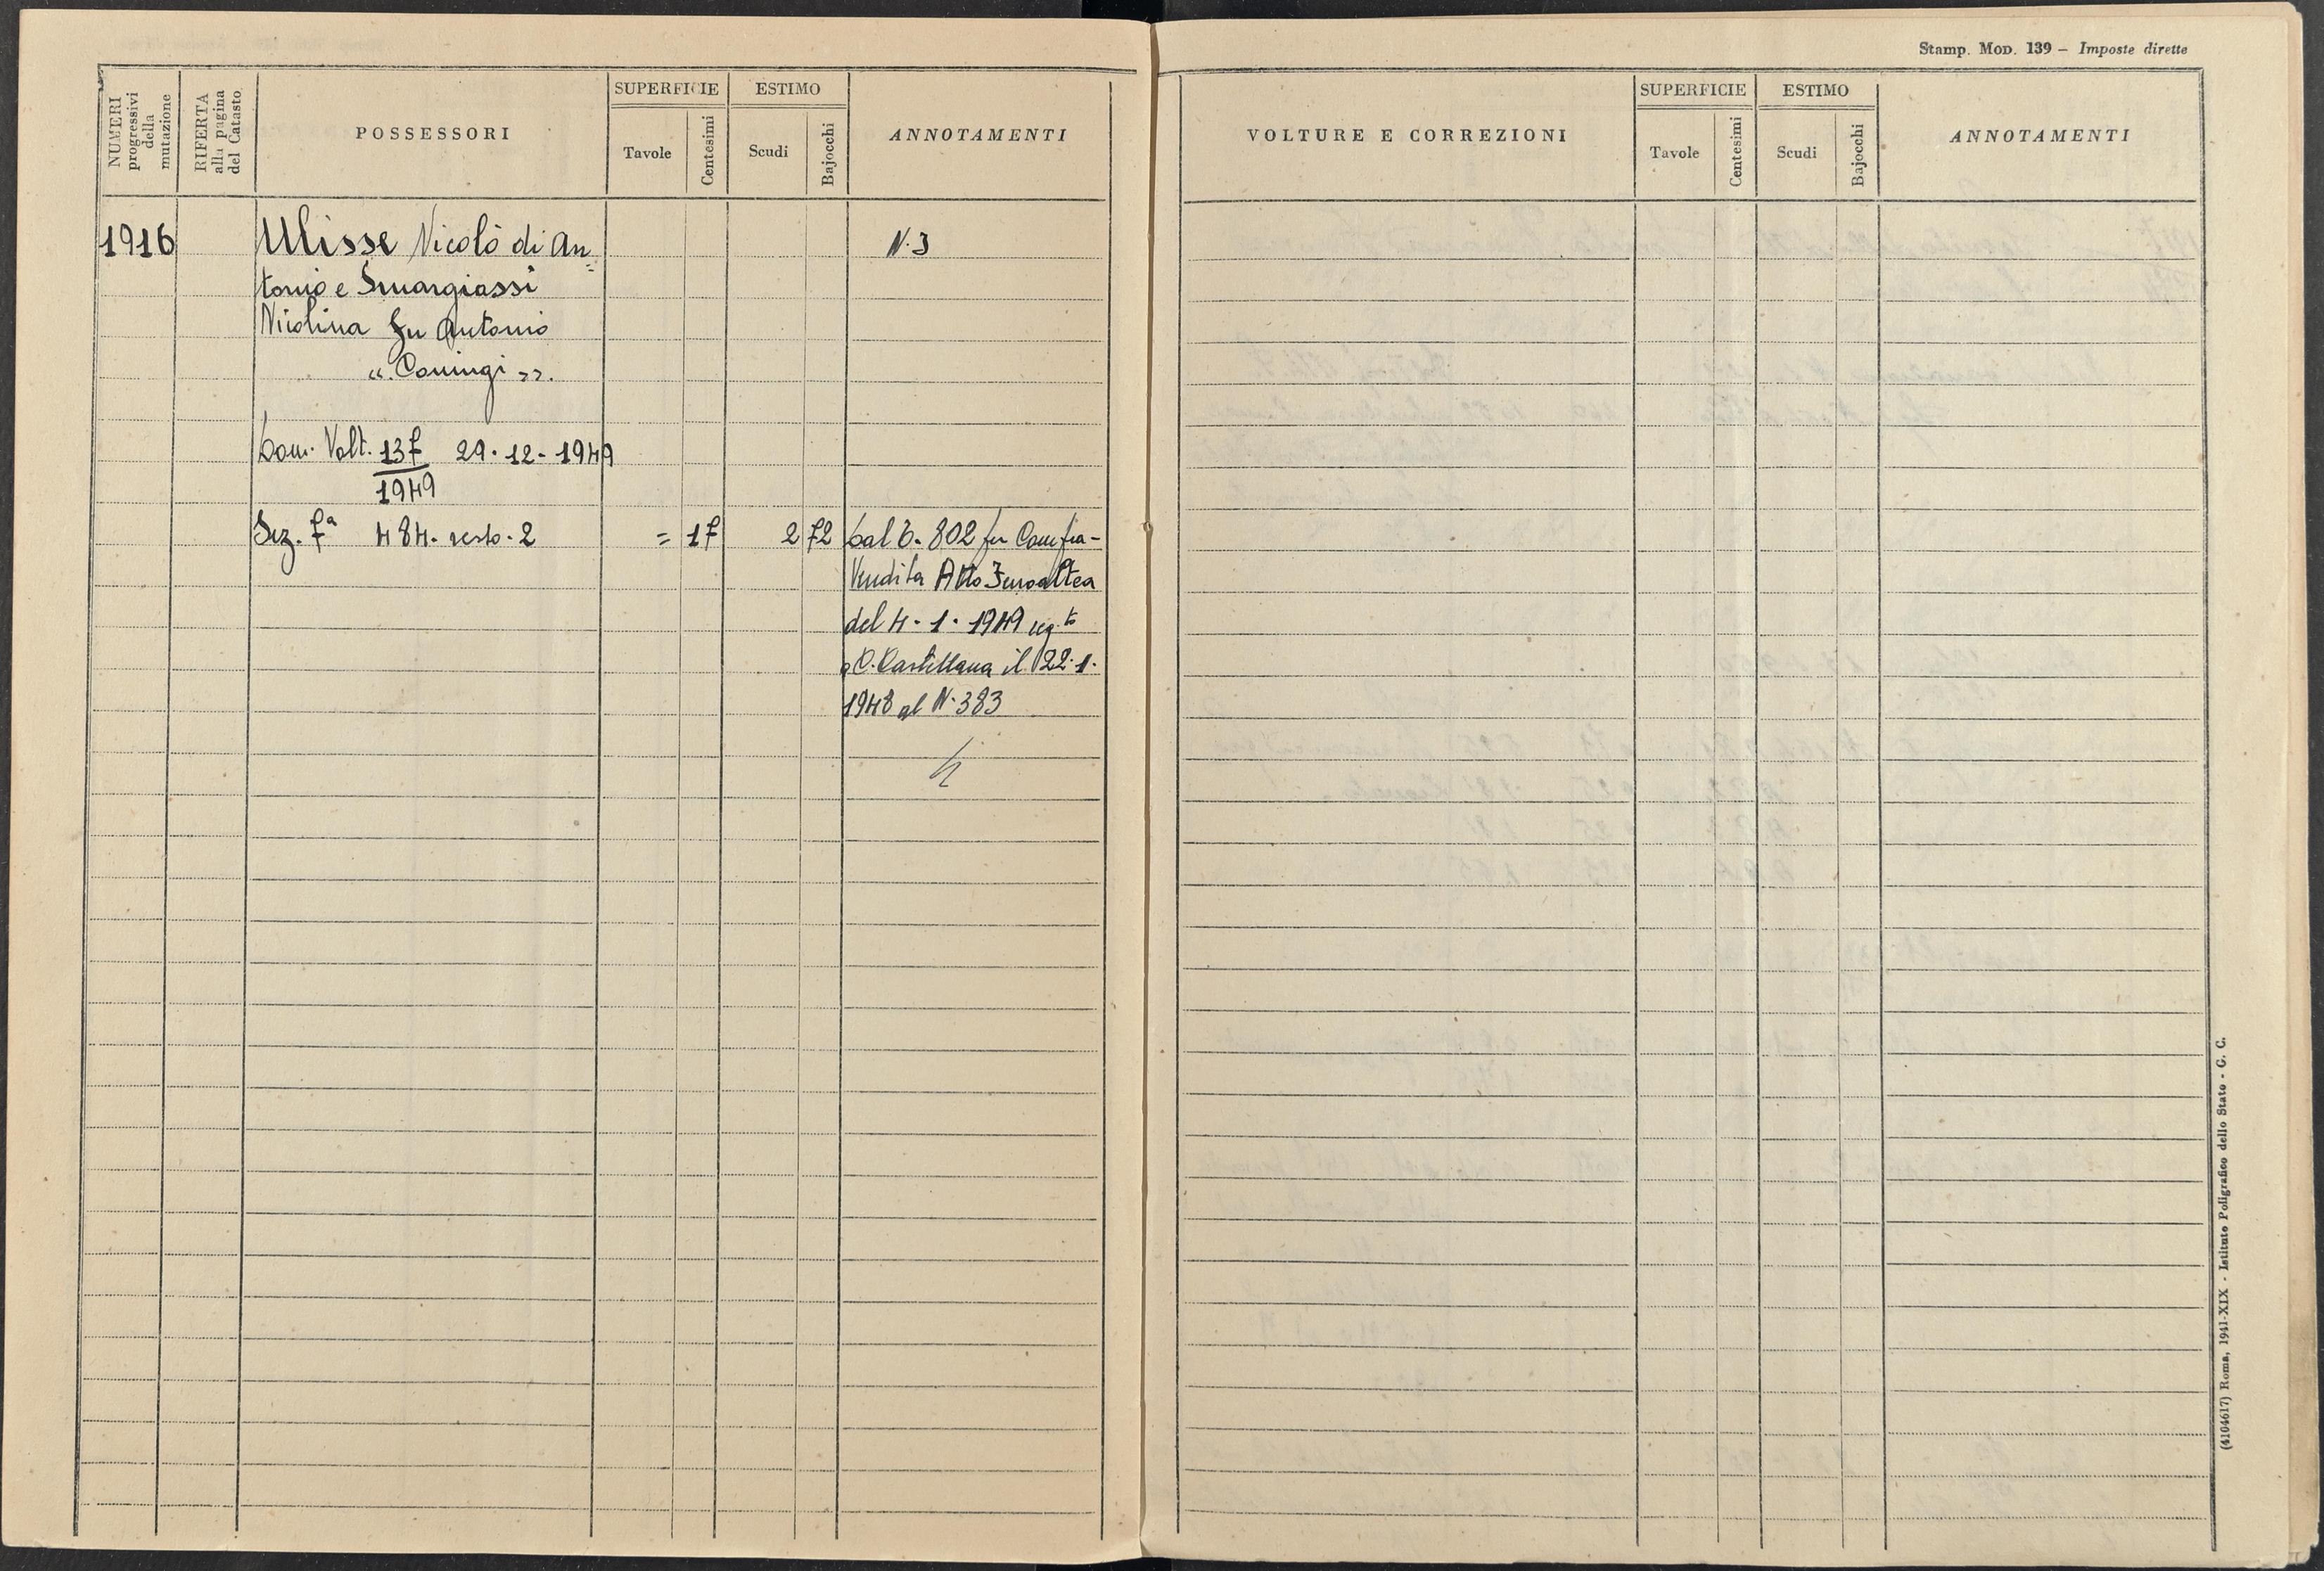 Stamp. Mod. 139 – Imposte dirette
NUMERI progressivi della mutazione
RIFERTA alla pagina del Catasto
POSSESSORI
SUPERFICIE
Tavole
Centesimi
ESTIMO
Scudi
Bajocchi
ANNOTAMENTI
VOLTURE E CORREZIONI
SUPERFICIE
Tavole
Centesimi
ESTIMO
Scudi
Bajocchi
ANNOTAMENTI
1916 Ulisse Nicolò di An= N. 3
tonio e Smargiassi
Nicolina fu Antonio
Dom. Volt. 137 29-12-1949
1949
Sez. 7ª 484. resto. 2 = 17 2 72 Dal C. 802 per Compra-
Vendita Atto
del 4-1-1949 reg.to
a C. Castellana il 22-1-
1948 al N. 383
(4104617) Roma, 1941-XIX - Istituto Poligrafico dello Stato - G. C.